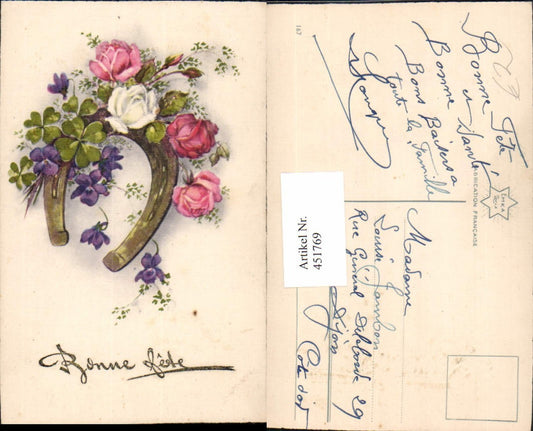 Bonne fête
Bonne Fête
et Santé
Bonne
Bons Baisers a
toute la Famille
FABRICATION FRANÇAISE
187
Artikel Nr.
451769
Madame
Louise Jambon
Rue Général 29
Dijon
Cote d'or